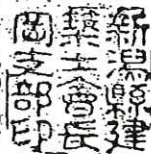 新潟縣建
築士會長
岡支部印